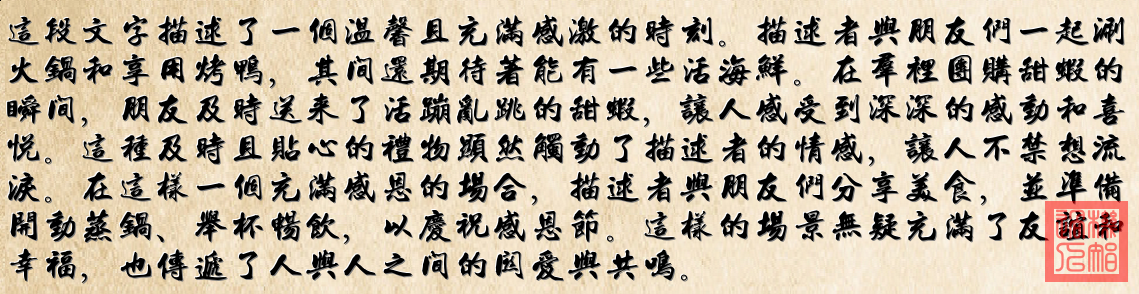 這段文字描述了一個溫馨且充滿感激的時刻。描述者與朋友們一起涮
火鍋和享用烤鴨，其间還期待著能有一些活海鮮。在羣裡團購甜蝦的
瞬间，朋友及時送来了活蹦亂跳的甜蝦，讓人感受到深深的感動和喜
悅。這種及時且貼心的禮物顯然觸動了描述者的情感，讓人不禁想流
淚。在這樣一個充滿感恩的場合，描述者與朋友們分享美食，並準備
開動蒸鍋、舉杯暢飲，以慶祝感恩節。這樣的場景無疑充滿了友誼和
幸福，也傳遞了人與人之间的関愛與共鳴。